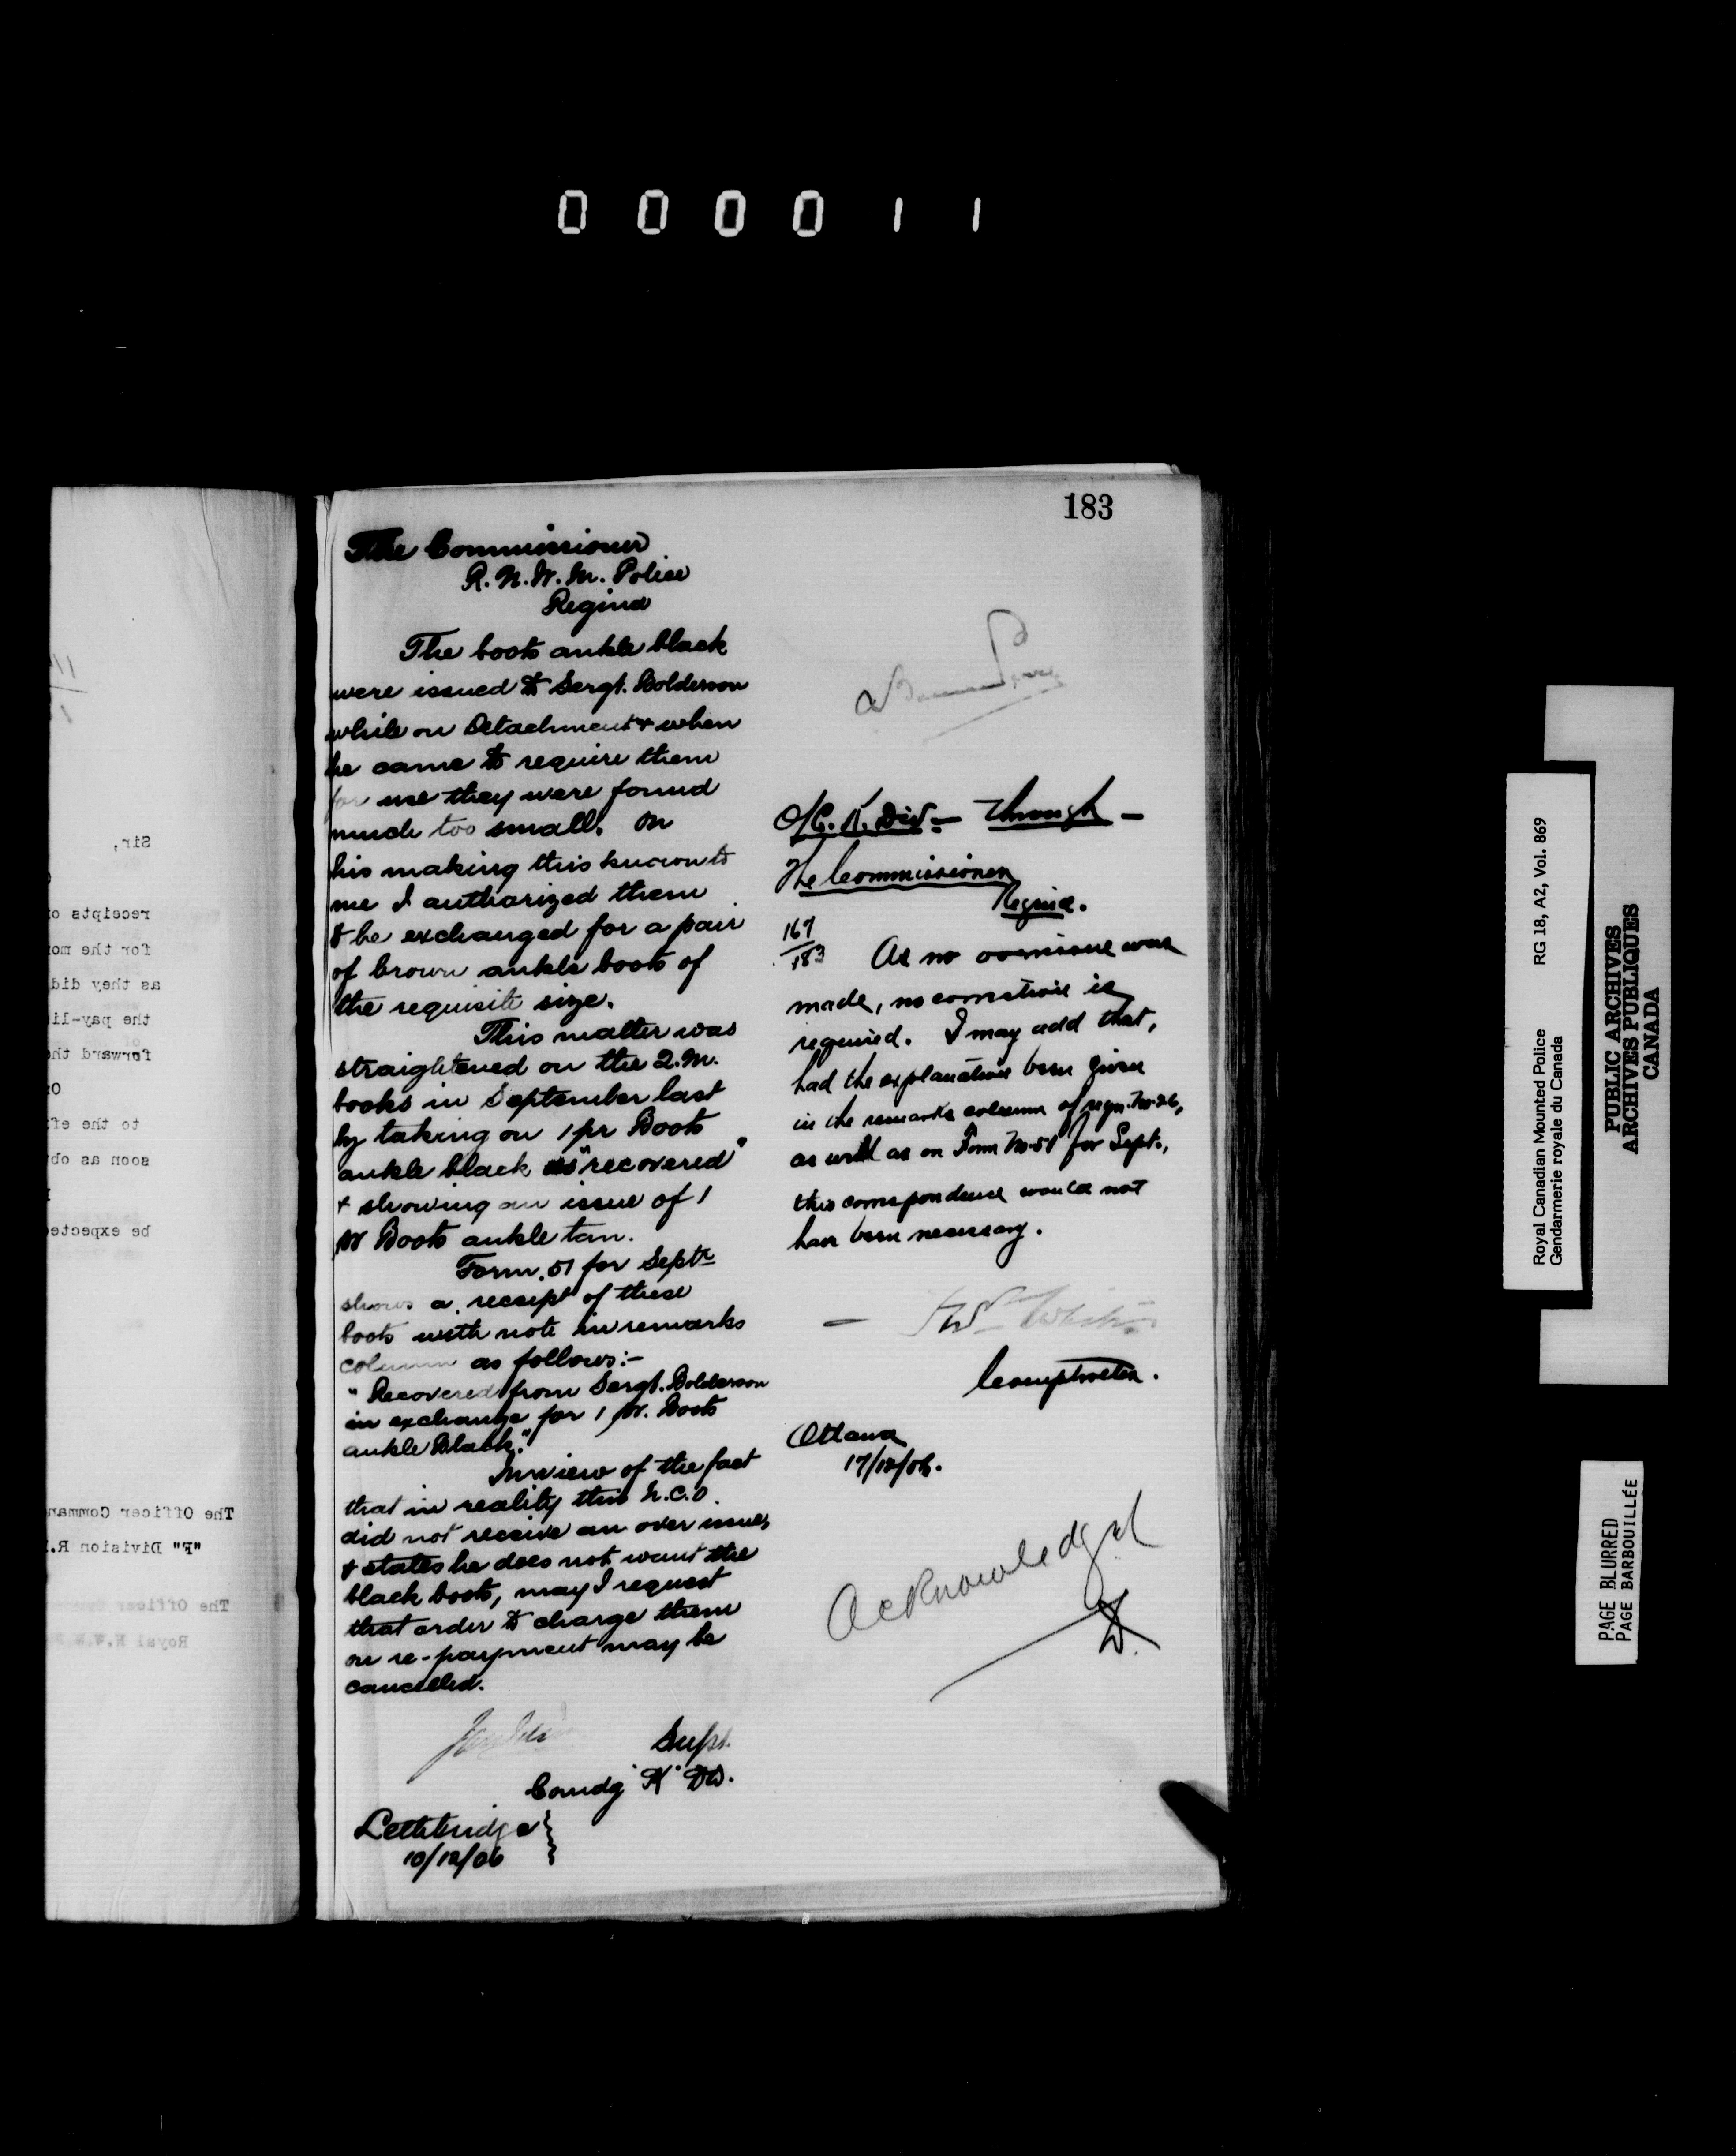 000011
183
The Commissioner
R.N.W.M. Police
Regina
The boots ankle black
were issued to Sergt. Bolderson
while on Detachment & when
he came to require them
for use they were found
much too small. On
his making this known to
me I authorized them
to be exchanged for a pair
of brown ankle boots of
the requisite size.
This matter was
straightened on the Q.M.
books in September last
by taking on 1 pr Boots
ankle black as "recovered"
& showing an issue of 1
pr Boots ankle tan.
Form 51 for Septr
shows a receipt of these
boots with note in remarks
column as follows:-
"Recovered from Sergt. Bolderson
in exchange for 1 pr. Boots
ankle Black."
In view of the fact
that in reality this N.C.O.
did not receive an over issue,
& states he does not want the
black boots, may I request
that order to charge them
on re-payment may be
cancelled.
Supt.
Comdg "K" Div.
Lethbridge
10/12/06
O/C. K. Div - through -
The Commissioner
Regina.
167
183 As no overissue was
made, no correction is
required. I may add that,
had the explanation been given
in the remarks column of reqn. No. 26,
as well as on Form No. 51 for Sept.,
this correspondence would not
have been necessary.
- Fred White
Comptroller.
Ottawa
17/12/06.
Acknowledged
Sir,
receipts o
for the mo
as they did
the pay-li
forward th
to the ef
soon as ob
be expecte
The Officer Comman
"F" Division R.
The Officer
Royal N.W.M.
Royal Canadian Mounted Police RG 18, A2, Vol. 869
Gendarmerie royale du Canada
PUBLIC ARCHIVES
ARCHIVES PUBLIQUES
CANADA
PAGE BLURRED
PAGE BARBOUILLÉE